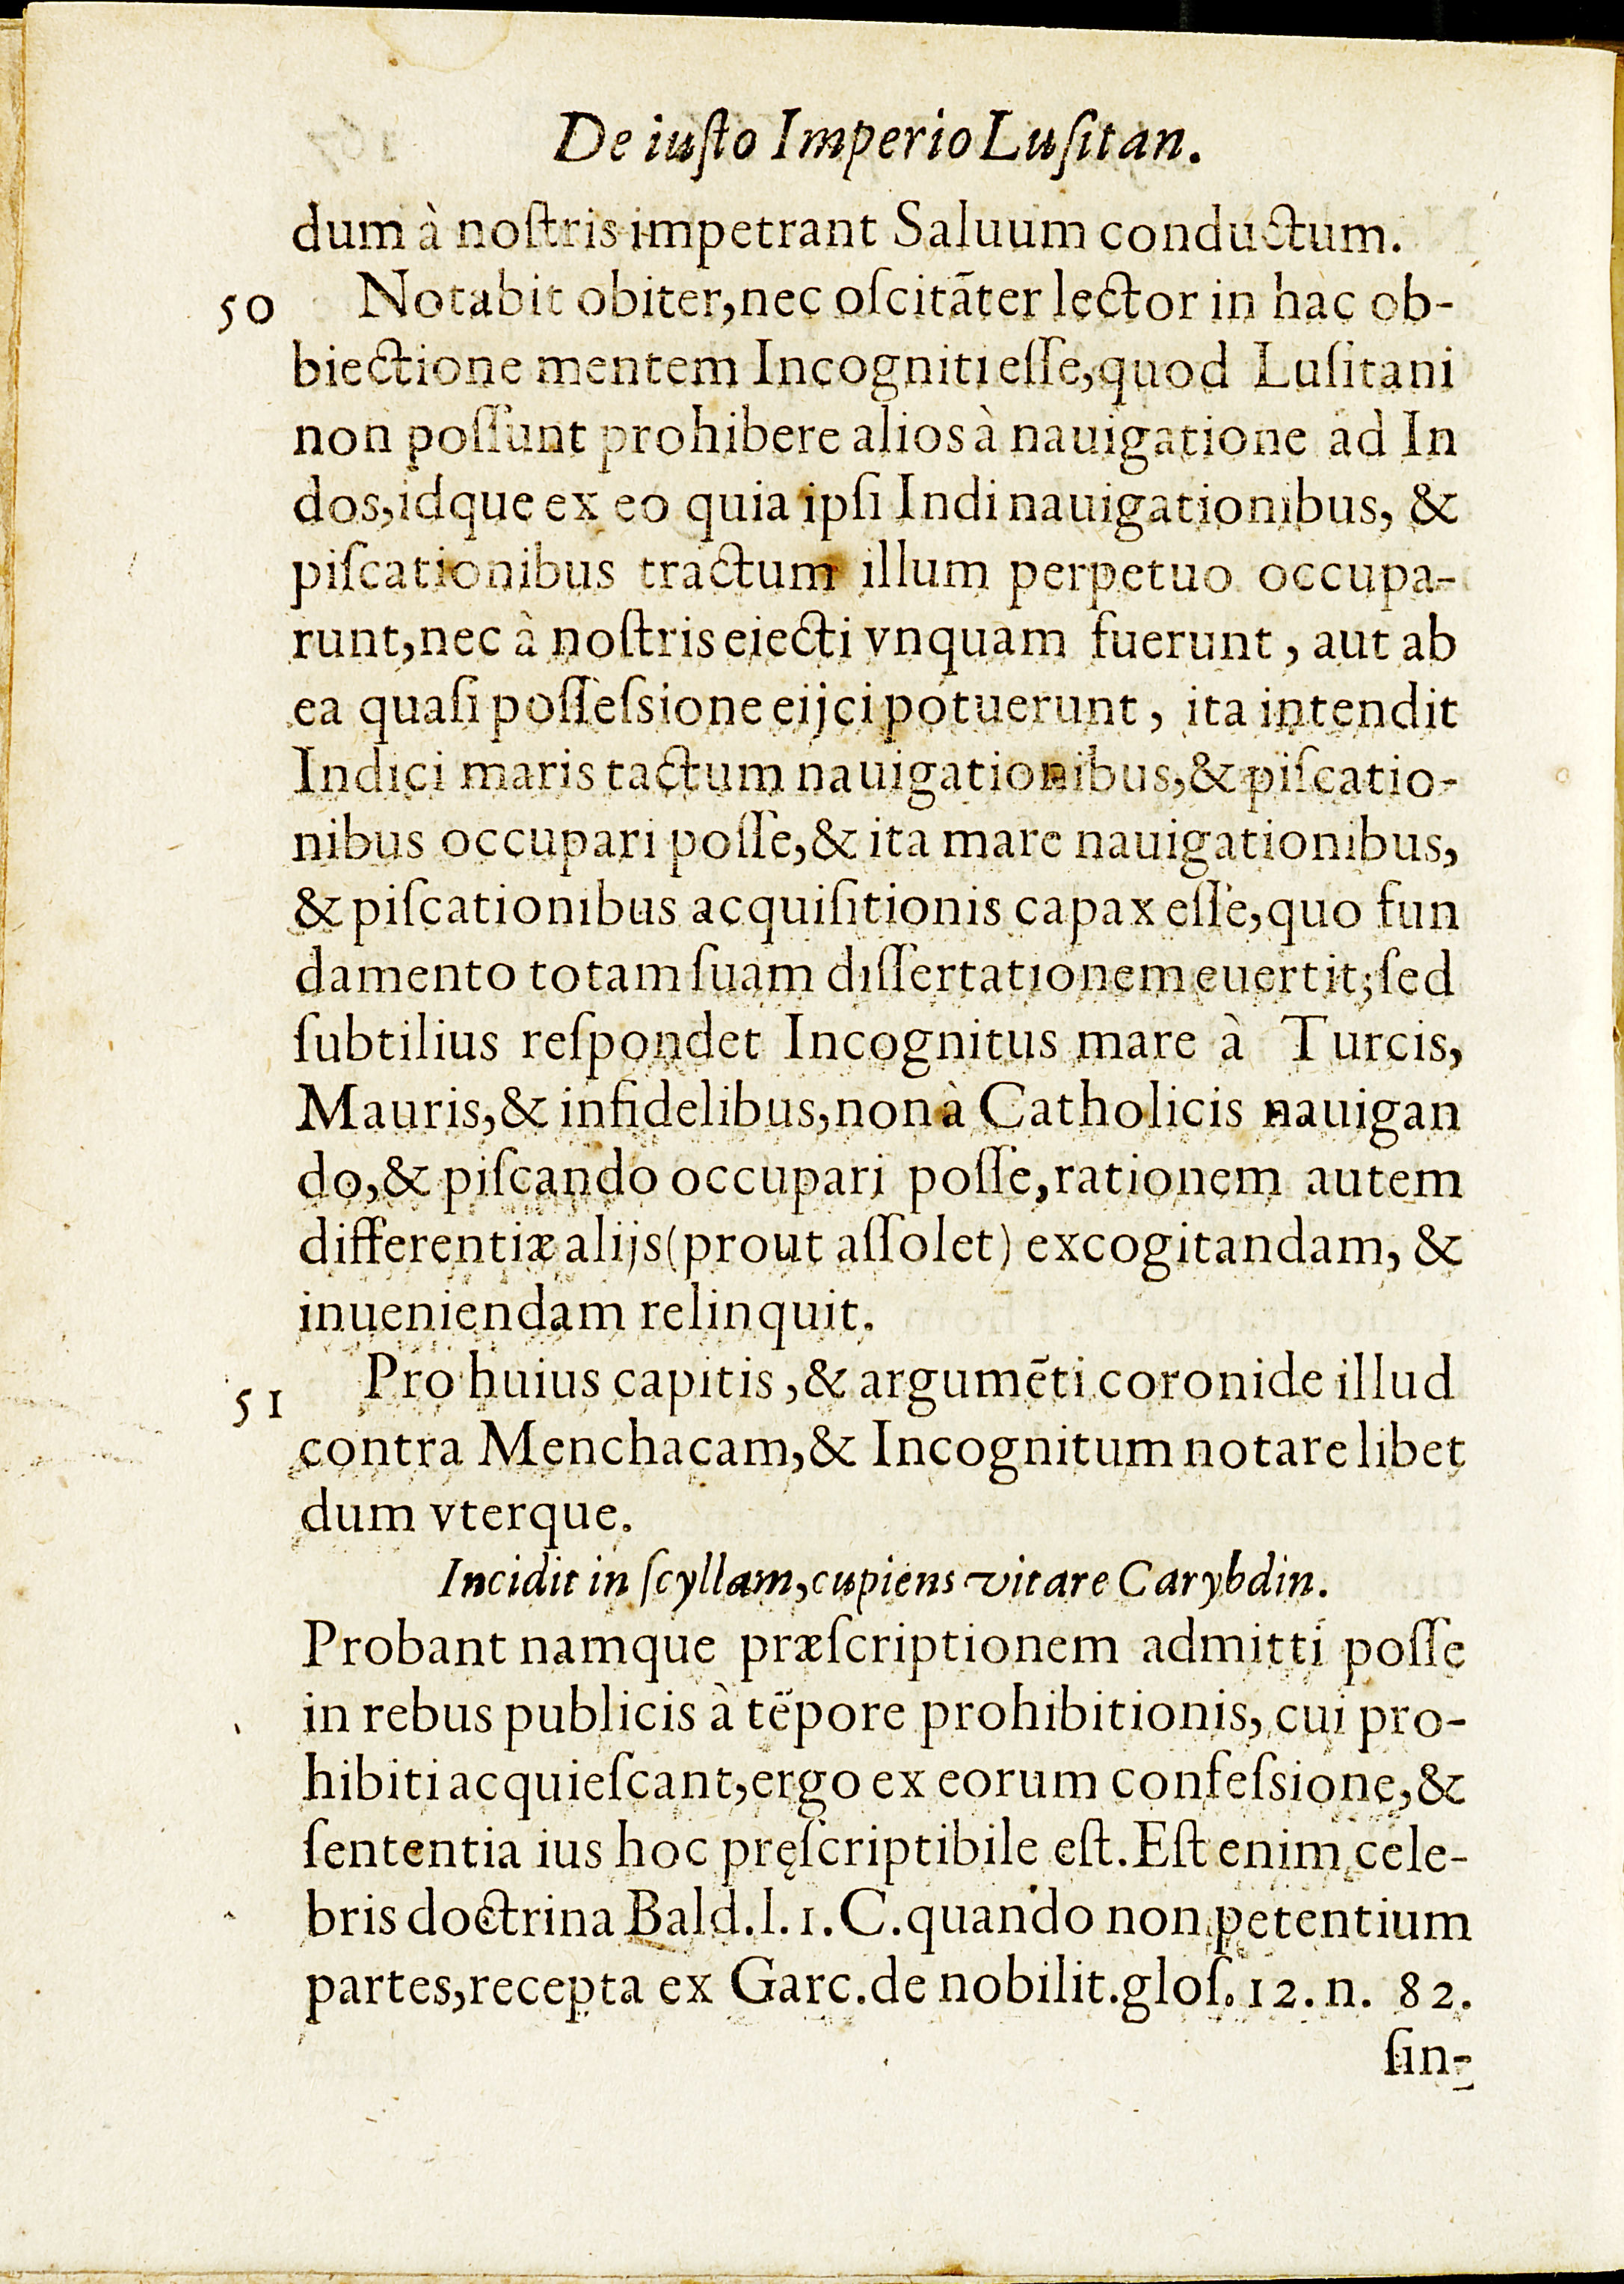 De iuſto Imperio Luſitan.
dum à noſtris impetrant Saluum conductum.
50 Notabit obiter, nec oſcitāter lector in hac ob-
biectione mentem Incogniti eſſe, quod Luſitani
non poſſunt prohibere alios à nauigatione ad In
dos, idque ex eo quia ipſi Indi nauigationibus, &
piſcationibus tractum illum perpetuo occupa-
runt, nec à noſtris eiecti vnquam fuerunt, aut ab
ea quaſi poſſeſsione eijci potuerunt, ita intendit
Indici maris tactum nauigationibus, & piſcatio-
nibus occupari poſſe, & ita mare nauigationibus,
& piſcationibus acquiſitionis capax eſſe, quo fun
damento totam ſuam diſſertationem euertit; ſed
ſubtilius reſpondet Incognitus mare à Turcis,
Mauris, & infidelibus, non à Catholicis nauigan
do, & piſcando occupari poſſe, rationem autem
differentiæ alijs (prout aſſolet) excogitandam, &
inueniendam relinquit.
51 Pro huius capitis, & argumēti coronide illud
contra Menchacam, & Incognitum notare libet
dum vterque.
Incidit in ſcyllam, cupiens vitare Carybdin.
Probant namque præſcriptionem admitti poſſe
in rebus publicis à tēpore prohibitionis, cui pro-
hibiti acquieſcant, ergo ex eorum confeſsione, &
ſententia ius hoc pręſcriptibile eſt. Eſt enim cele-
bris doctrina Bald. l. 1. C. quando non petentium
partes, recepta ex Garc. de nobilit. gloſ. 12. n. 82.
ſin-